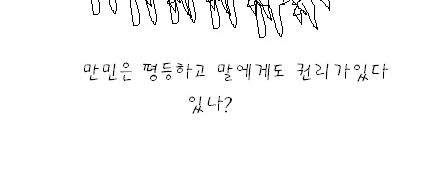 만민은 평등하고 말에게도 권리가있다
있나?